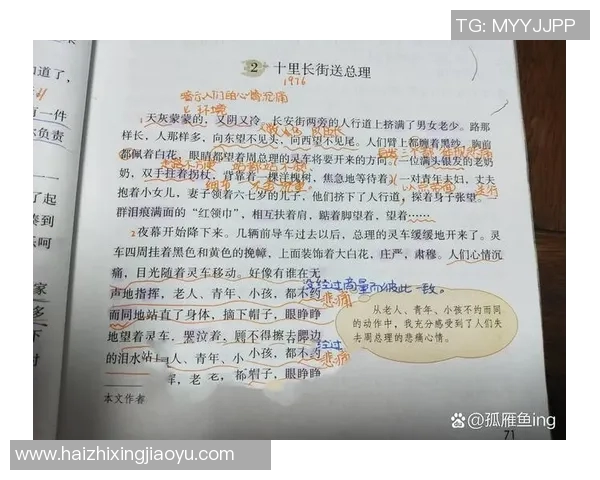 TG: MYYJJPP
2 十里长街送总理
1976
暗示人们的心情沉痛
环境
1天灰蒙蒙的，又阴又冷。长安街两旁的人行道上挤满了男女老少。路那
样长，人那样多，向东望不见头，向西望不见尾。人们臂上都缠着黑纱，胸前
都佩着白花，眼睛都望着周总理的灵车将要开来的方向。一位满头银发的老奶
奶，双手拄着拐杖，背靠着一棵洋槐树，焦急地等待着。一对青年夫妇，丈夫
抱着小女儿，妻子领着六七岁的儿子，他们挤下了人行道，探着身子张望。
群泪痕满面的“红领巾”，相互扶着肩，踮着脚望着，望着……
2夜幕开始降下来。几辆前导车过去以后，总理的灵车缓缓地开来了。灵
车四周挂着黑色和黄色的挽幛，上面装饰着大白花，庄严，肃穆。人们心情沉
痛，目光随着灵车移动。好像有谁在无
没经过商量而彼此一致。
声地指挥，老人、青年、小孩，都不约
悲痛
而同地站直了身体，摘下帽子，眼睁睁
地望着灵车，哭泣着，顾不得擦去腮边
的泪水
人、青年、小孩，都不约
经过
悲痛
挥，老
帽子，眼睁睁
本文作者
从老人、青年、小孩不约而同
的动作中，我充分感受到了人们失
去周总理的悲痛心情。
道了，
有一件
负责
起了
凑到
呋呵
家
多
下
71
@孤雁鱼ing
www.haizhixingjiaoyu.com